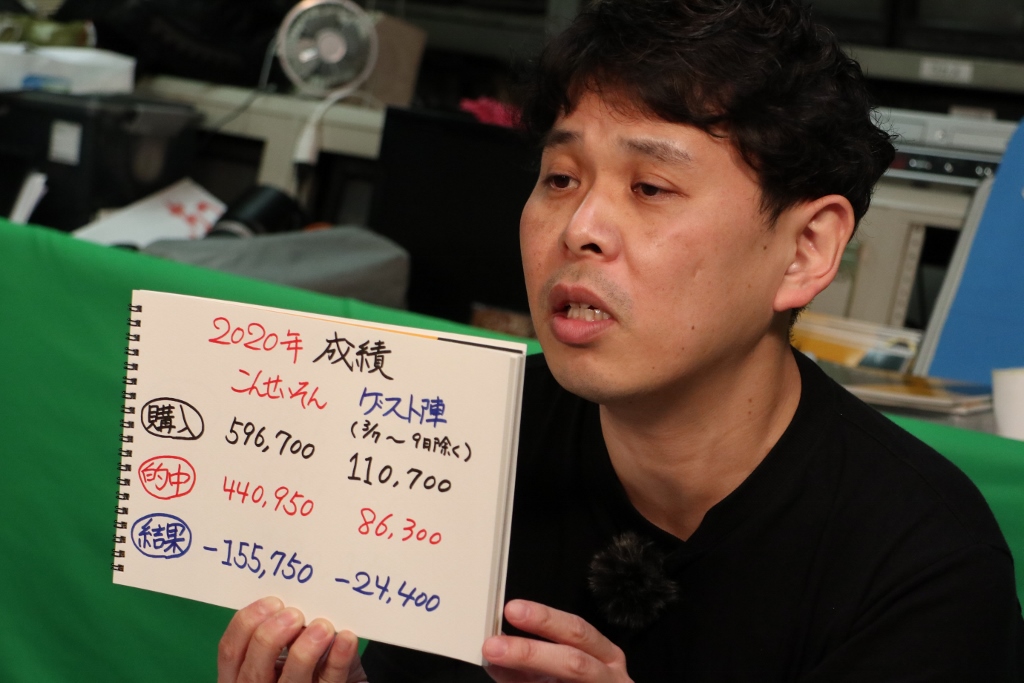 2020年 成績
こんせいそん ゲスト陣
(3/7〜9日除く)
購入 596,700 110,700
的中 440,950 86,300
結果 -155,750 -24,400